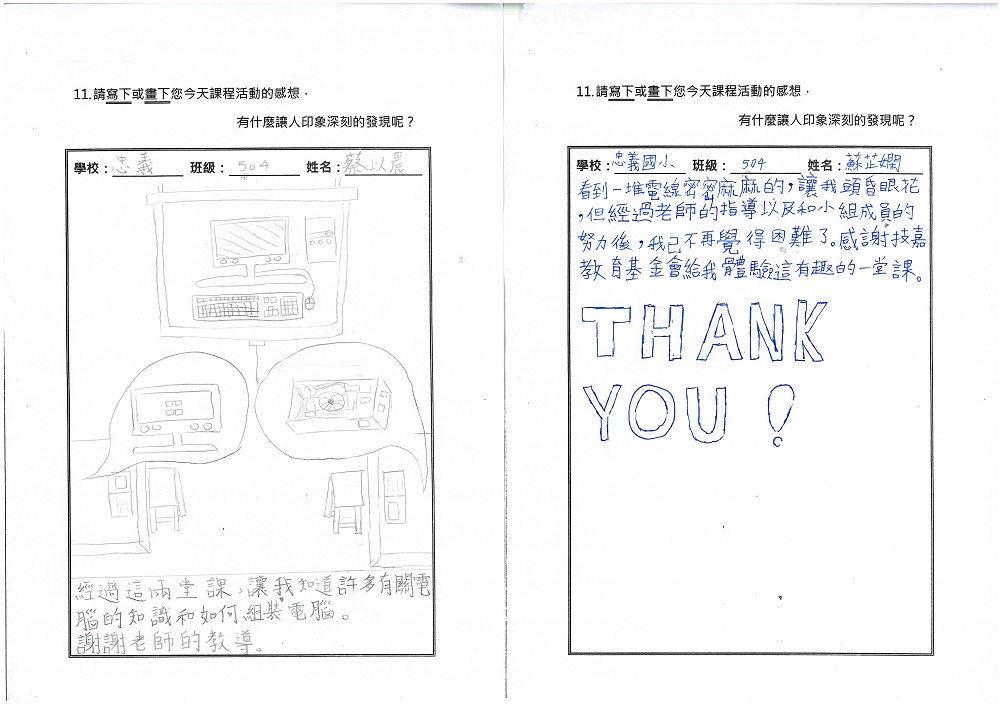 11.請寫下或畫下您今天課程活動的感想，
有什麼讓人印象深刻的發現呢？
學校：忠義 班級：504 姓名：蔡以晨
經過這兩堂課，讓我知道許多有關電
腦的知識和如何組裝電腦。
謝謝老師的教導。
11.請寫下或畫下您今天課程活動的感想，
有什麼讓人印象深刻的發現呢？
學校：忠義國小 班級：504 姓名：蘇芷嫻
看到一堆電線密密麻麻的，讓我頭昏眼花
，但經過老師的指導以及和小組成員的
努力後，我已不再覺得困難了。感謝技嘉
教育基金會給我體驗這有趣的一堂課。
THANK
YOU！